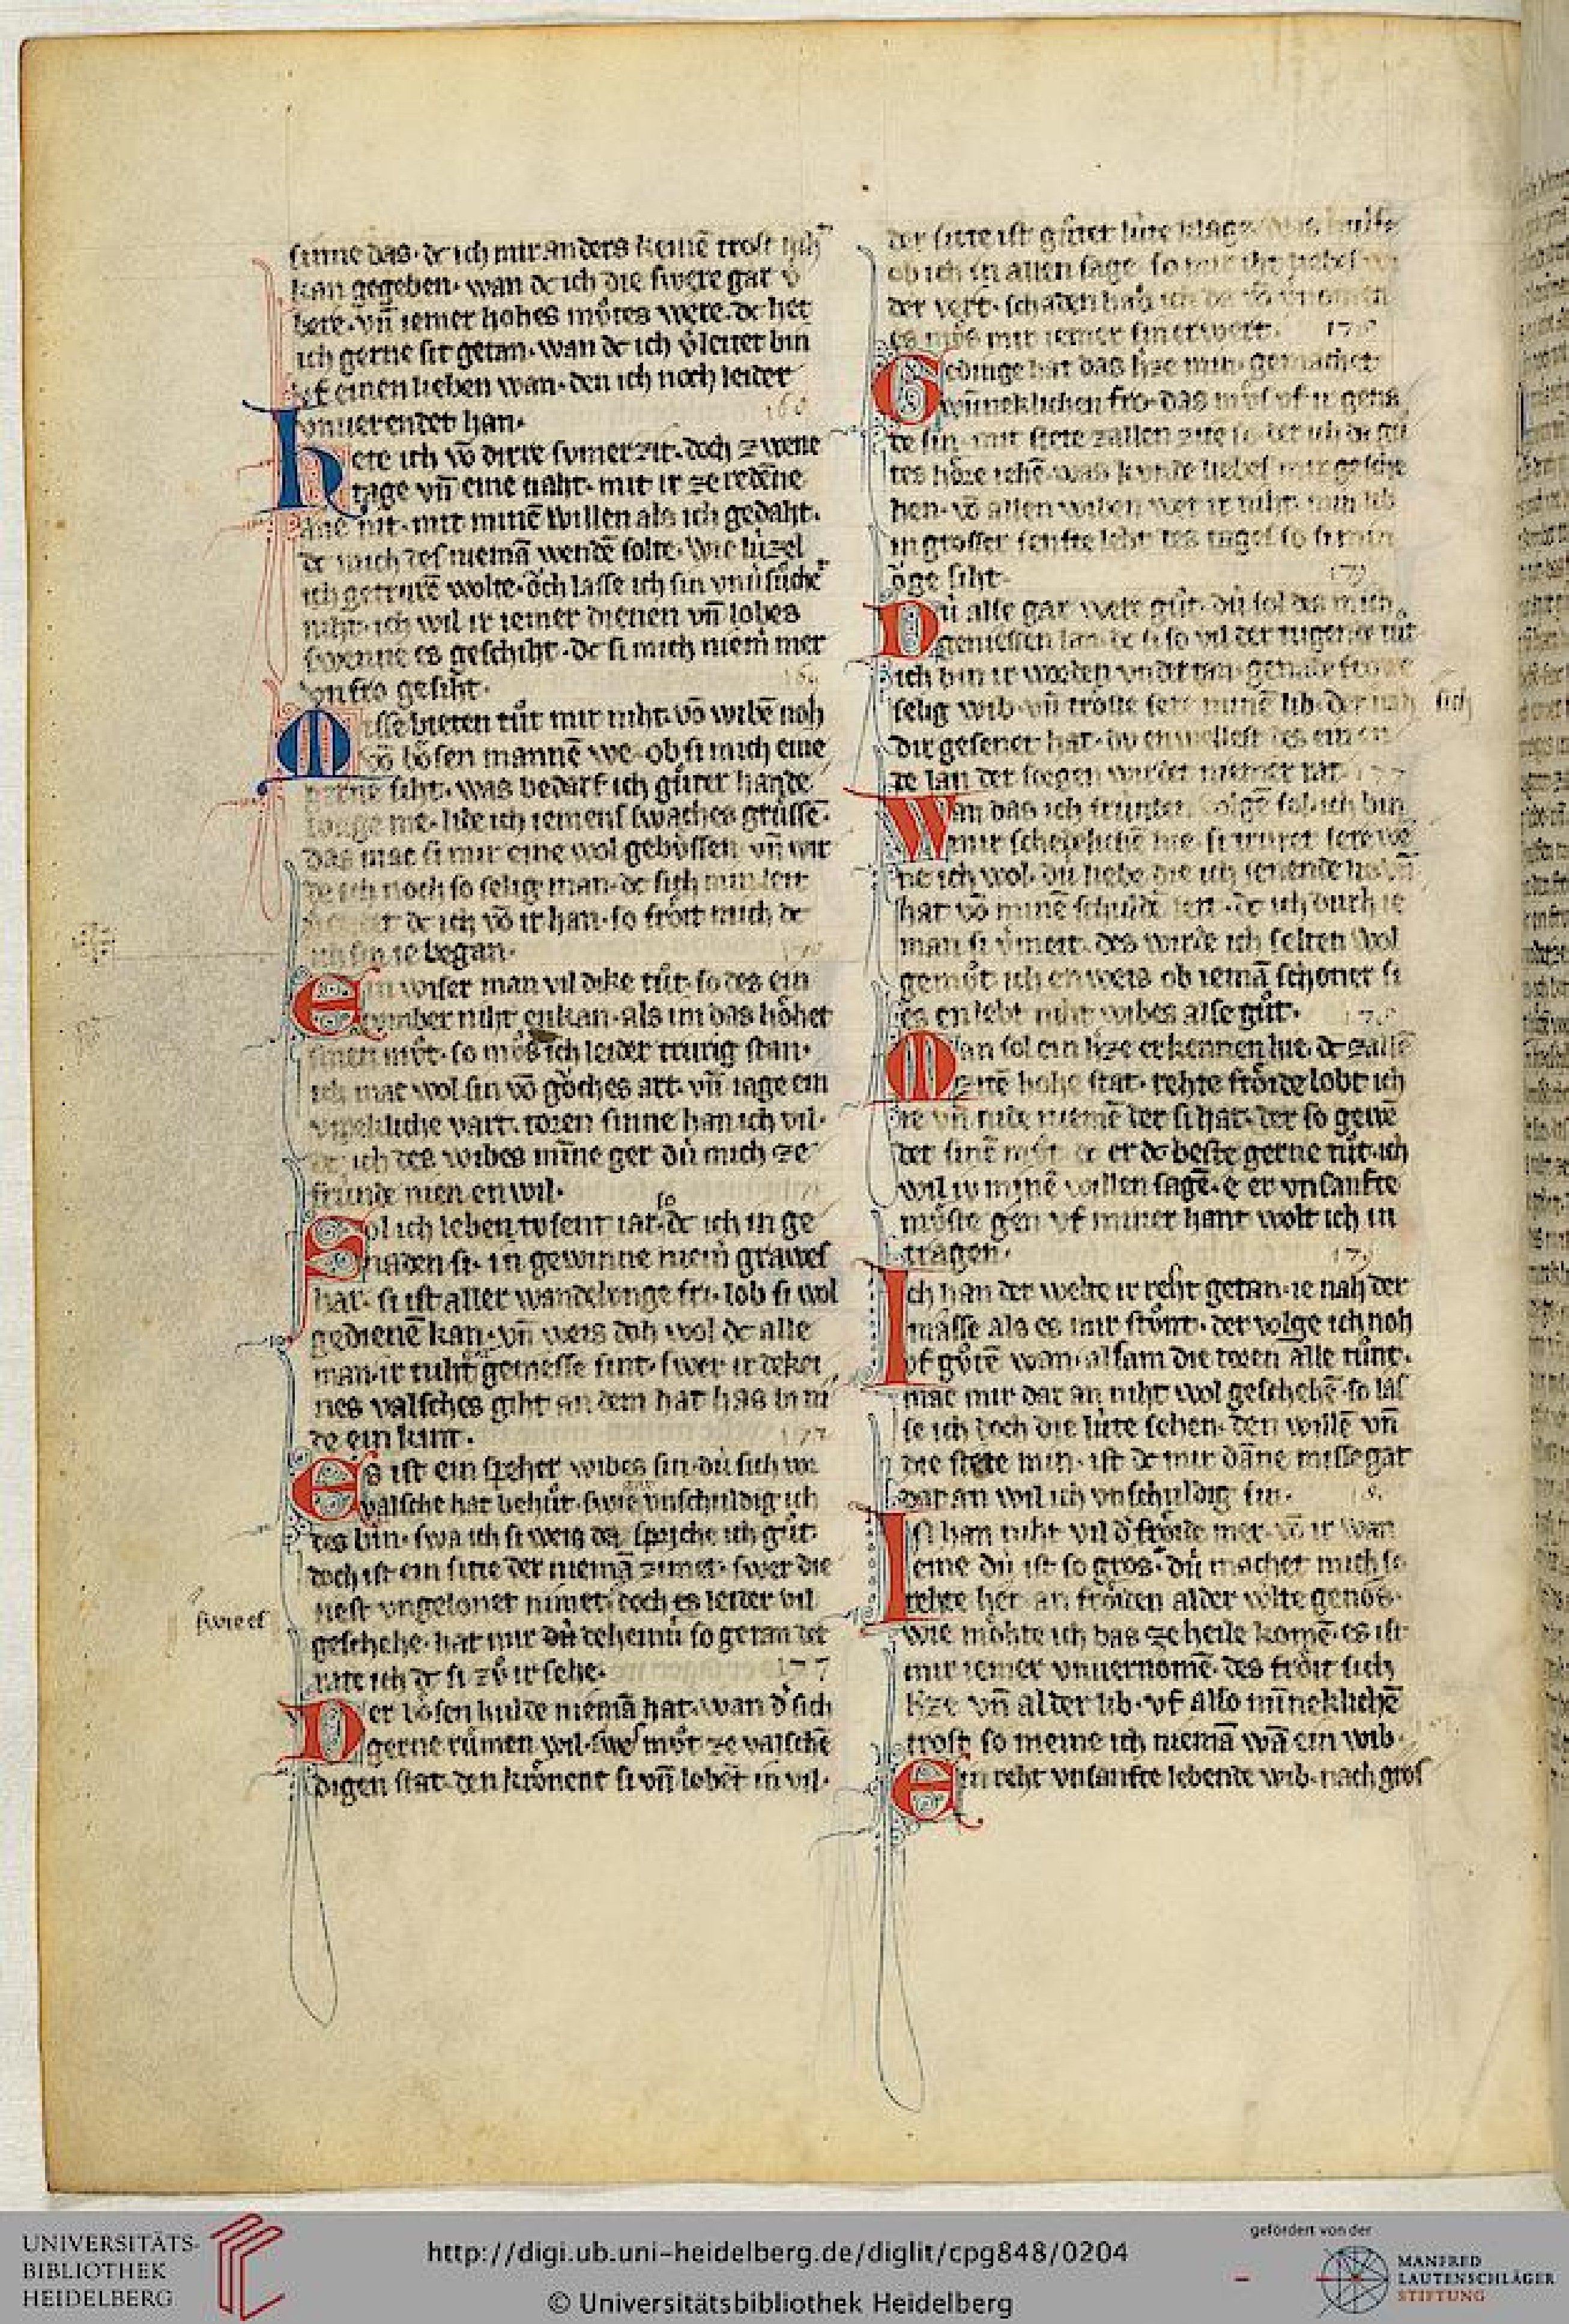 sinne das· dc ich mir anders keinē trost niht
kan gegeben· wan dc ich die swere gar v̾
bere· vn̄ iemer hohes můtes were· dc het
ich gerne sit getan· wan dc ich v̾leitet bin
vf einen lieben wan· den ich noch leider
vnuerendet han·
Hete ich vō dirre sumerzit· doch zwene
tage vn̄ eine naht· mit ir ze redēne
ane nit· mit minē willen als ich gedaht·
dc mich des niemā wendē solte· wie lùzel
ich getruwē wolte· ŏch lasse ich sin vnùsůchet
niht· ich wil ir iemer dienen vn̄ lobes
swenne es geschiht· dc si mich niem̄ mer
vnfro gesiht·
Misse bieten tůt mir niht· vō wibē noh
vō bôsen mannē we· ob si mich eine
gerne siht· was bedarf ich gůter hande
me· lide ich iemens swaches grůssē·
das mac si mir eine wol gebůssen· vn̄ wir
de ich noch so selig man· dc sich min leit
dc ich vō ir han· so frôit mich dc
ich sin ie began·
Ein wiser man vil dike tůt· so des ein
tumber niht enkan· als im das hôhet
sinen můt· so můs ich leider trurig stan·
ich mac wol sin vō gŏches art· vn̄ iage ein
vppekliche vart· toren sinne han ich vil·
dc ich des wibes mīne ger dù mich ze
frùnde nien enwil·
Sol ich leben tusent iar· so dc ich in ge
naden si· in gewinne niem̄ grawes
har· si ist aller wandelunge fri· lob si wol
gedienē kan· vn̄ weis doh wol dc alle
man· ir tuht gemesse sint· swer ir dekei
nes valsches giht an dem hat has bi ni
de ein kint·
Es ist ein speher wibes sin· dù sich vor
valsche hat behůt· swie vnschuldig ich
des bin· swa ich si weis da spriche ich gůt
doch ist ein sitte der niemā zimet· swer die
nest vngelonet nimet· doch es leider vil
swie es
geschehe· hat mir dù deheinù so getan der
rate ich dc si zů ir sehe·
177
Der bôsen hulde niemā hat· wan d̾ sich
gerne růmen wil· swes můt ze valschē
digen stat· den krônent si vn̄ lobēt in vil·
der sitte ist gůter lùte klage
ob ich in allen sage so mir ir
der vert· schaden hab ich da vō
es můs mir iemer sin erwert·
Gedinge hat das h̾ze min· gemachet
wūneklichen fro· das můs vf ir gena
de sin· mit stete zallen zite so· der ich da gů
tes hôre iehē· was kunde liebes mir gesche
hen· vō allen wiben wer ir niht· min lib
in grosser senfte lebt des tages so si min
ŏge siht·
Dù alse gar wete gůt· dù sol des mich
geniessen lan· dc si so vil der tugende tůt
ich bin ir worden vndertan· genade frowe
selig wib· vn̄ trôste sere minē lib· der nah sich
dir gesenet hat· du enwellest des einen
de lan der sorgen wirdet niemer rat·
Wan das ich frùnden volgē sol· ich bin
mir schedelichē hie· si truret sere we
ne ich wol· dù liebe die ich senende
hat vō minē schuldē leit· dc ich durh ie
man si v̾meit· des wirde ich selten wol
gemůt ich enweis ob iemā schoner si
es enlebt niht wibes alse gůt·
Man sol ein h̾ze erkennen hie· dc zallē
zitē hohe stat· rehte frôide lobt ich
ie vn̄ nide niemē der si hat· der so gewē
det sinē můt· dc er dc beste gerne tůt· ich
wil iu minē willen sagē· e er vnsanfte
můste gen vf miner hant wolt ich in
tragen·
Ich han der welte ir reht getan· ie nah der
masse als es mir stůnt· der volge ich noh
vf gůtē wan· alsam die toren alle tůnt·
mac mir dar an niht wol geschehē· so las
se ich doch die lùte sehen· den willē vn̄
die stete min· ist dc mir dāne missegat
dar an wil ich vnschuldig sin·
Ich han niht vil d̾ frôide mer· vō ir wan
eine dù ist so gros· dù machet mich so
rehte her· an frôiden alder welte genos·
wie môhte ich bas ze heile komē· es ist
mir iemer vnuernomē· des frôit sich
h̾ze vn̄ alder lib· vf also mīneklichē
trost so meine ich niemā wā ein wib·
Ein reht vnsanfte lebende wib· nach gros
UNIVERSITÄTS-
BIBLIOTHEK
HEIDELBERG
http://digi.ub.uni-heidelberg.de/diglit/cpg848/0204
© Universitätsbibliothek Heidelberg
gefördert von der
MANFRED
LAUTENSCHLÄGER
STIFTUNG